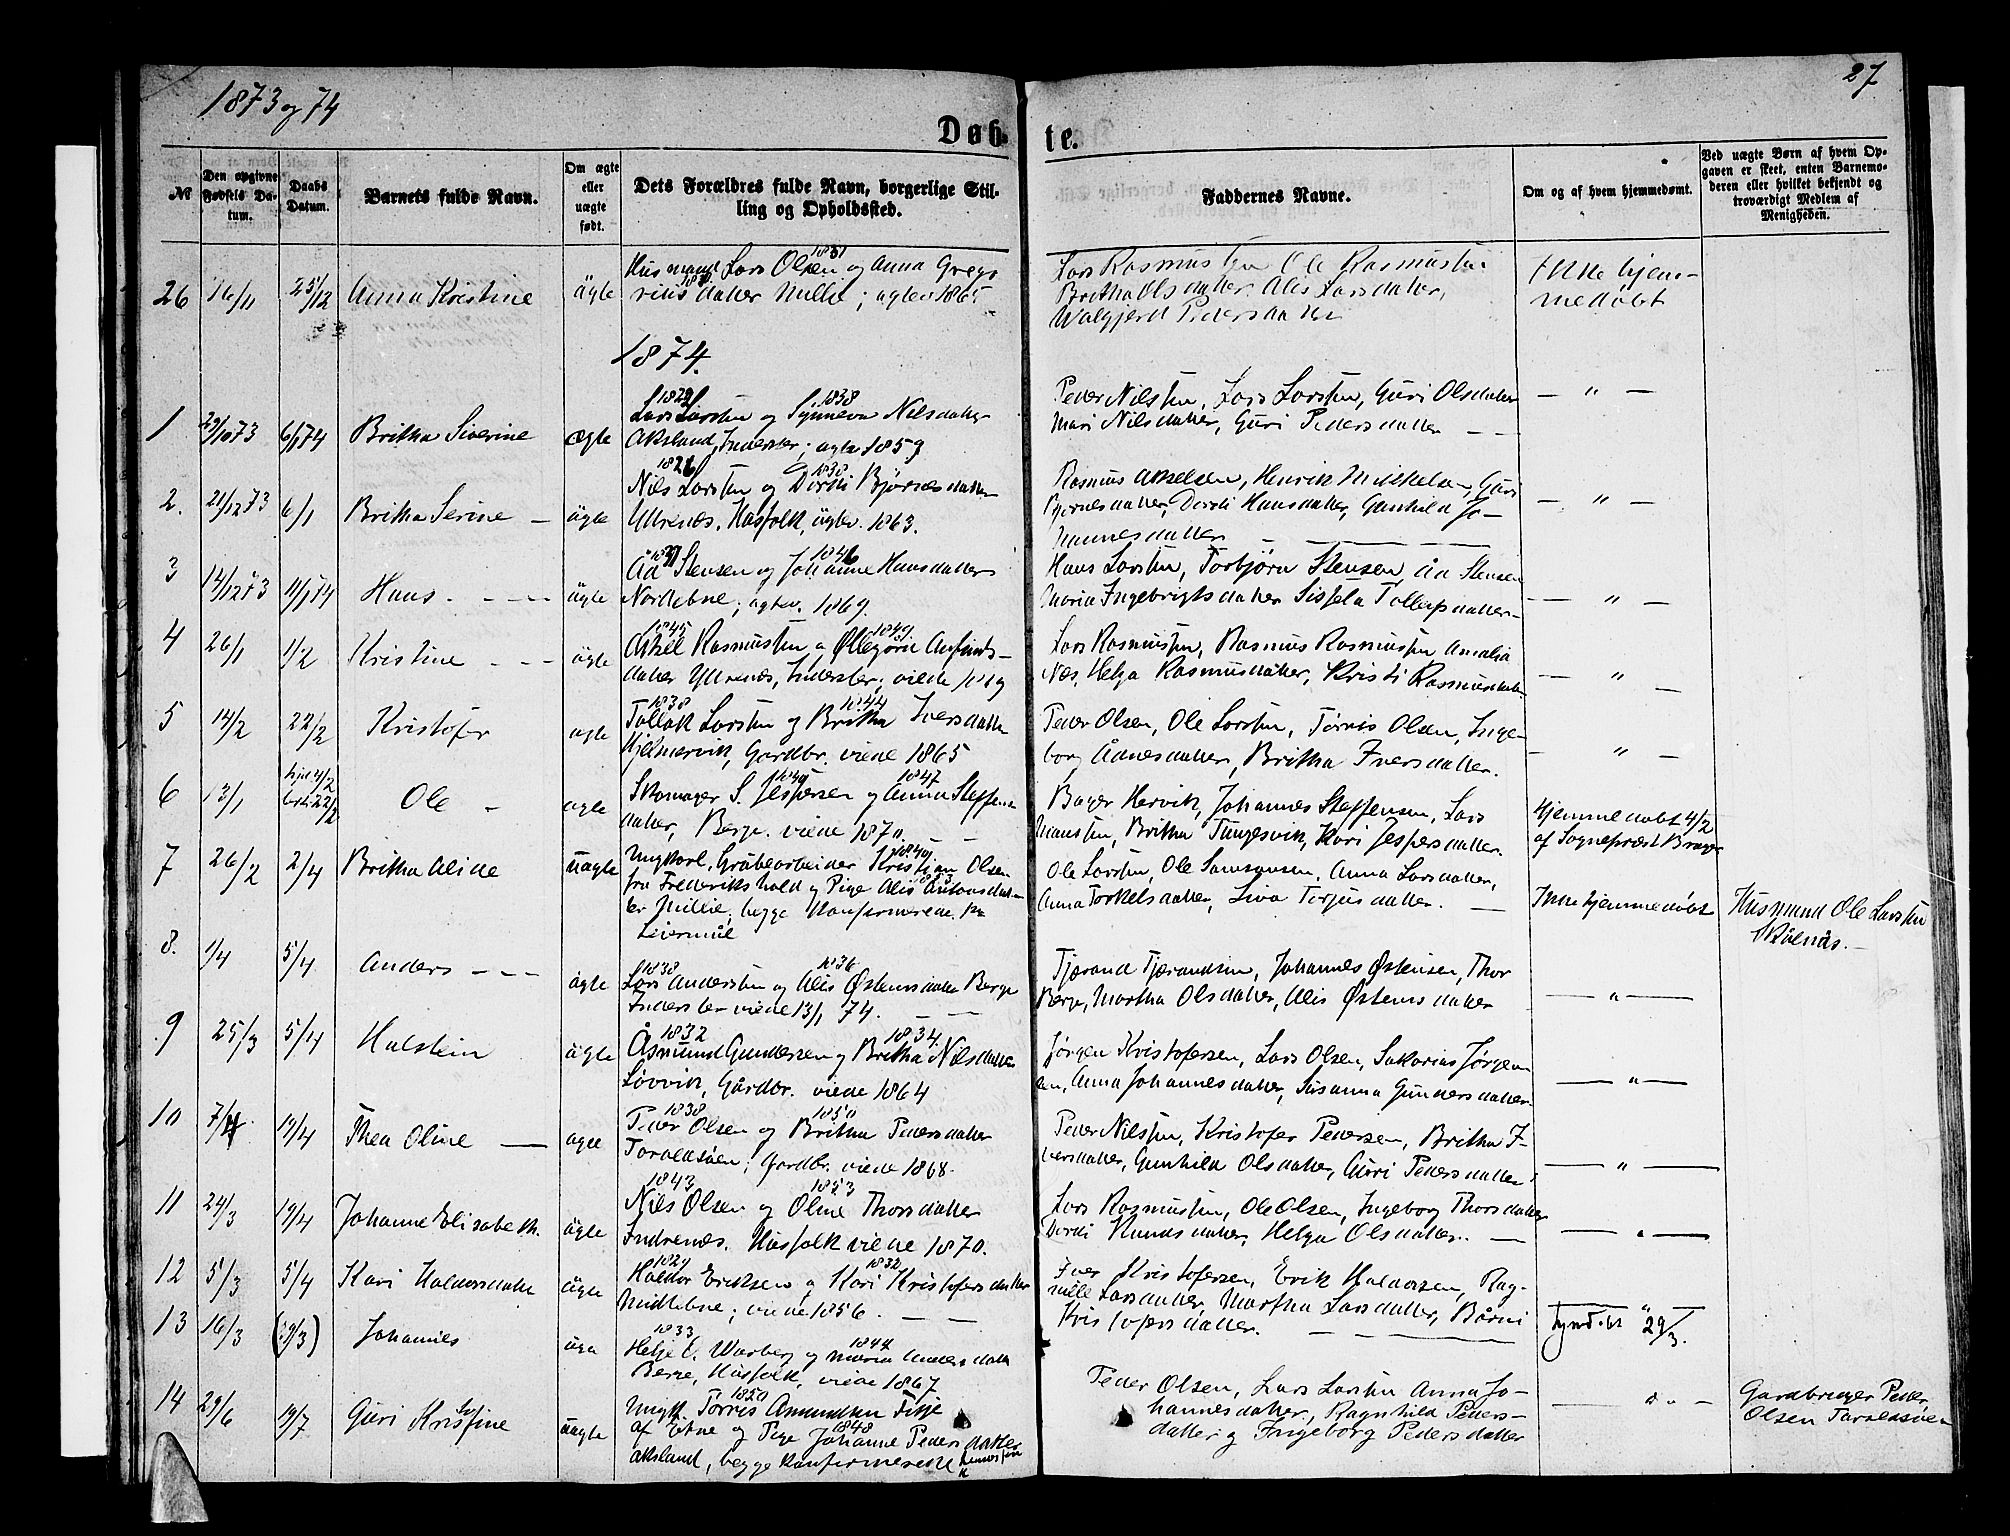 1873 og 74
27
Døb-
te.
№
Den opgivne Fødsels Datum.
Daabs Datum.
Barnets fulde Navn.
Om ægte eller uægte født.
Dets Forældres fulde Navn, borgerlige Stilling og Opholdssted.
Faddernes Navne.
Om og af hvem hjemmedøbt.
Ved uægte Børn af hvem Opgaven er skeet, enten Barnemoderen eller hvilket bekjendt og troværdigt Medlem af Menigheden.
26 16/11 25/12 Anna Kristine ägte
Husmand Lars Olsen og Anna Gregoriusdatter
Lars Rasmussen Ole Rasmussen
Britha Olsdatter Alis Larsdatter,
Walgjerd Pedersdatter
Ikke hjemmedøbt
1874.
1 29/10 73 6/1 74 Britha Siverine ægte
1838
Lars Larsen og Synneva Nilsdatter
Aksland, Inderster; ægtev 1859
Peder Nilsen, Lars Larsen, Guri Olsdatter
Mari Nilsdatter, Guri Pedersdatter
— " —
2. 21/12 73 6/1 Britha Serine — ägte
1826 1838
Nils Larsen og Dordi Bjørnesdatter
Ytrenæs, Husfolk, ägtev. 1863.
Rasmus Akselsen, Henrik Mikkelsen, Guri
Bjørnesdatter, Dordi Hansdatter, Gunhild Jo-
hannesdatter
— " —
3 14/12 73 11/1 74 Hans ägte
1846
Åd Stensen og Johanne Hansdatter
Nordtebne; ægtev. 1869.
Hans Larsen, Torbjørn Stensen, Åd Stensen
Maria Ingebrigtsdatter Sissela Tollefsdatter
— " —
4 26/1 1/2 Kristine ägte
1845 1849
Askil Rasmussen og Øllegørd Anfinds-
datter Ytrenæs, Inderster; viede
Lars Rasmussen, Rasmus Rasmussen Amalia
Næs, Helga Rasmusdatter, Kristi Rasmusdatter
— " —
5 14/2 22/2 Kristofer ægte
1838 1844
Tollak Larsen og Britha Iversdatter
Hjelmervik, Gardbr. viede 1865
Peder Olsen, Ole Larsen, Tørris Olsen, Inge-
borg Ådnesdatter, Britha Iversdatter.
— " —
6 13/1 hjd 4/2 22/2 Ole — ægte
1847
Skomager S. Jespersen og Anna Steffens-
datter, Berge. viede 1870
Bager Hervik, Johannes Steffensen, Lars
Monsen, Britha Tungesvik, Kari Jespersdatter.
Hjemmedøbt 4/2
af Sognepræst Brage
7 26/2 2/4 Britha Aline uægte
Ungkarl, Grubearbeider Kristian Olsen
fra Frederikshald og Pige Alis Antonsdat-
ter Millie, begge Konfirmerede.
Leiermål
Ole Larsen, Ole Samsonsen, Anna Larsdatter,
Anna Torkelsdatter, Siva Torjusdatter.
Ikke hjemmedøbt
Husmand Ole Larsen
8. 1/4 5/4 Anders ägte
1838 1836
Lars Andersen og Alis Østensdatter Berge
Inderster viede 13/1 74.
Tjærand Tjærandsen, Johannes Østensen, Thor
Berge, Martha Olsdatter, Alis Østensdatter
— " —
9 25/3 5/4 Halstein ägte
1832 1834.
Åsmund Gundersen og Britha Nilsdatter
Løvvik, Gårdbr. viede 1864
Jørgen Kristofersen, Lars Olsen, Sakarias Jørgen-
sen, Anna Johannesdatter, Susanna Gundersdatter.
— " —
10 7/4 19/4 Thea Oline — ægte
1838 1850
Peder Olsen og Britha Pedersdatter
Taraldsøen; Gardbr. viede 1868.
Peder Nilsen, Kristofer Pedersen, Britha I-
versdatter, Gunhild Olsdatter, Guri Pedersdatter
— " —
11 24/3 19/4 Johanne Elisabeth. ägte
1843 1853
Nils Olsen og Oline Thorsdatter
Indrenæs. Husfolk viede 1870.
Lars Rasmussen, Ole Olsen, Ingeborg Thorsdatter
Dordi Knudsdatter, Helga Olsdatter.
— " —
12 5/3 5/4 Kari Haldorsdatter ägte
1832
Haldor Eriksen og Kari Kristofersdatter
Midtebne; viede 1856.
Iver Kristofersen, Erik Haldorsen, Rag-
nille Larsdatter, Martha Larsdatter, Bårni
Kristofersdatter.
— " —
13 16/3 (29/3) Johannes
1833 1844
Helje O. Warberg og Maria Andersdatter
Berge, Husfolk, viede 1867
29/3.
14 29/6 19/7 Guri Kristine uægte
1850
Ungk. Tørris Asmundsen Fitje
1848
af Etne og Pige Johanne Pedersdatter
Aksland, begge konfirmerede
Peder Olsen, Lars Larsen Anna Jo-
hannesdatter, Ragnhild Peders-
datter og Ingeborg Pedersdatter
— " —
Gardbruger Peder
Olsen Taraldsøen